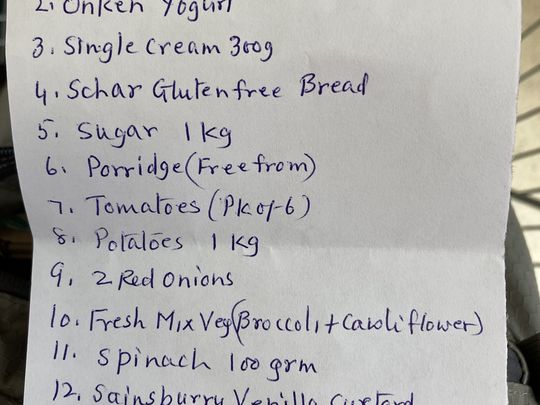 2. Onken Yogurt
3. Single Cream 300g
4. Schar Glutenfree Bread
5. Sugar 1 kg
6. Porridge (Freefrom)
7. Tomatoes (Pk of 6)
8. Potatoes 1 kg
9. 2 Red Onions
10. Fresh Mix Veg (Broccoli + Cauliflower)
11. Spinach 100 grm
12. Sainsburry Venilla Custard